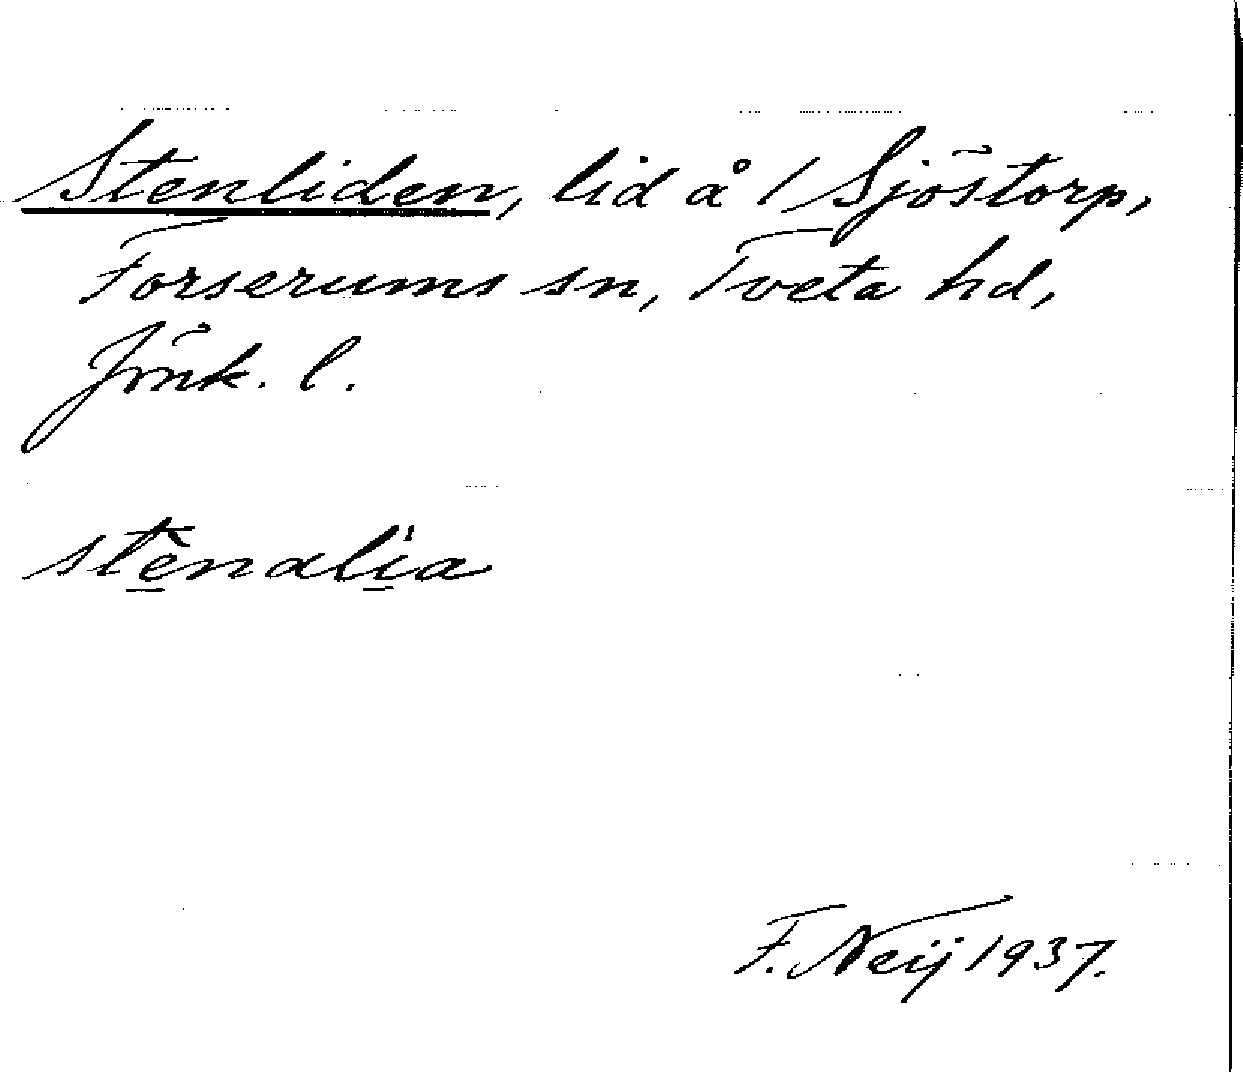 Stenliden, lid å 1 Sjöstorp,
Forserums sn, Tveta hd,
Jönk. l.
stènalia
F. Neij 1937.